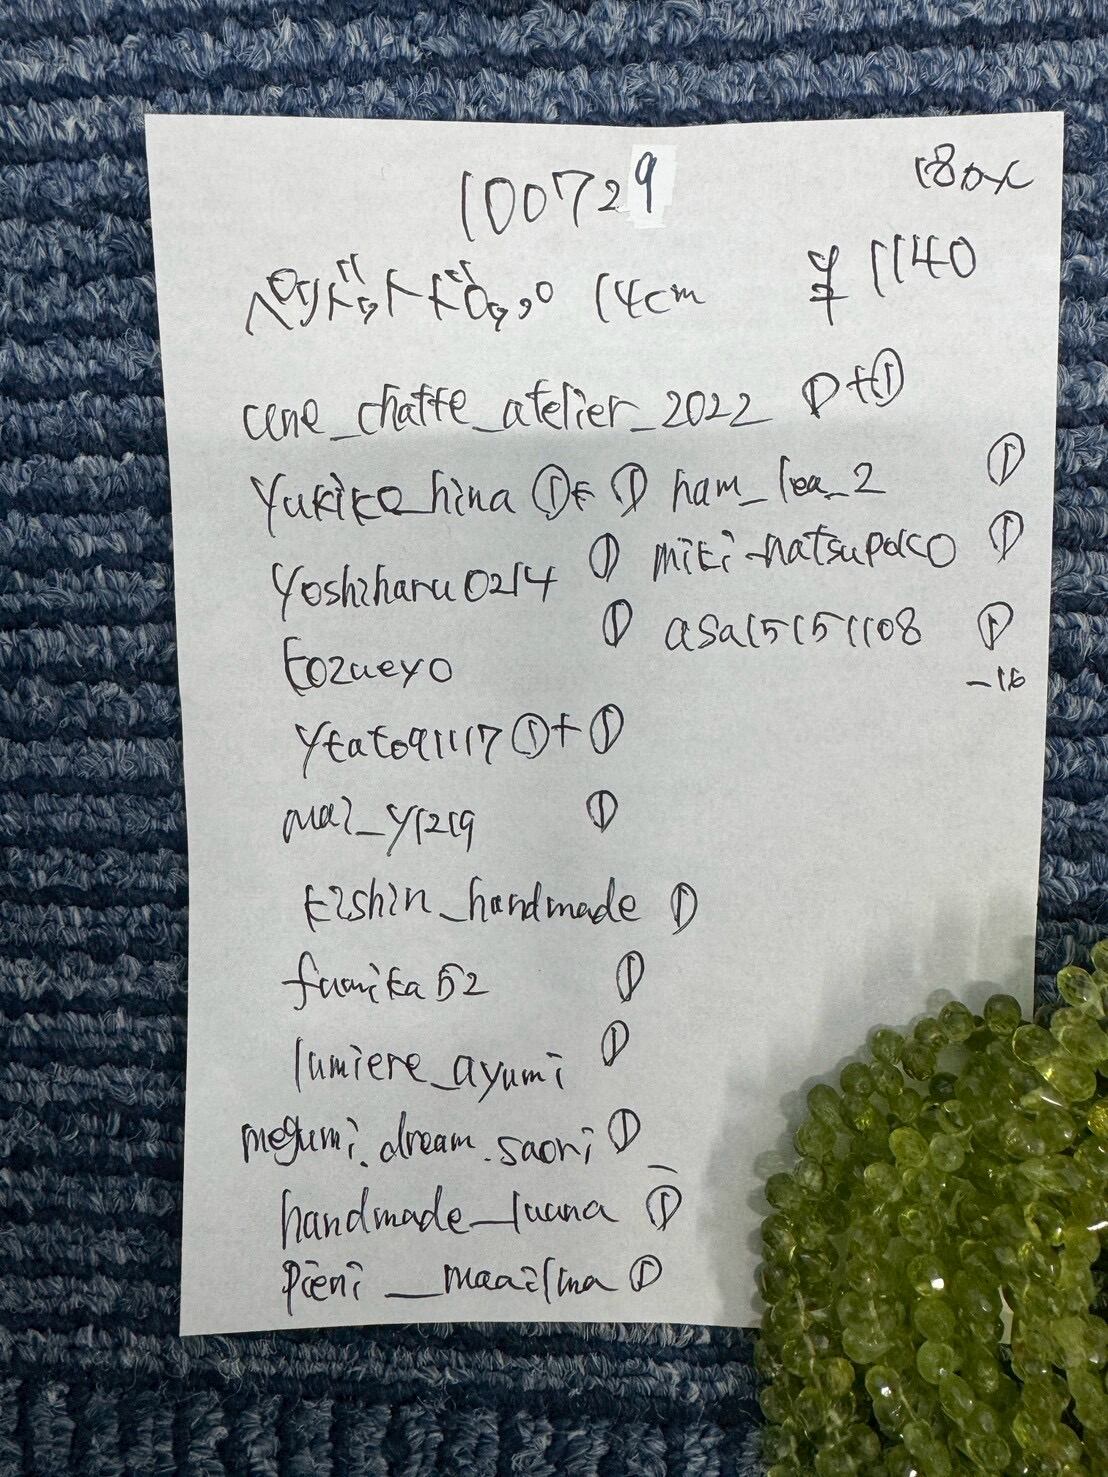 100729
180×
ペリドットドロップ 14cm ¥1140
une_chatte_atelier_2022 ①+①
Yukiko_hina ①+① ham_lea_2 ①
Yoshiharu0214 ① miki_natsupoco ①
kozueyo ① asa15151108 ①
-16
ykato91117 ①+①
mai_y1219 ①
kishin_handmade ①
fumika52 ①
lumiere_ayumi ①
megumi.dream.saori ①
handmade_luana ①
pieni__maailma ①